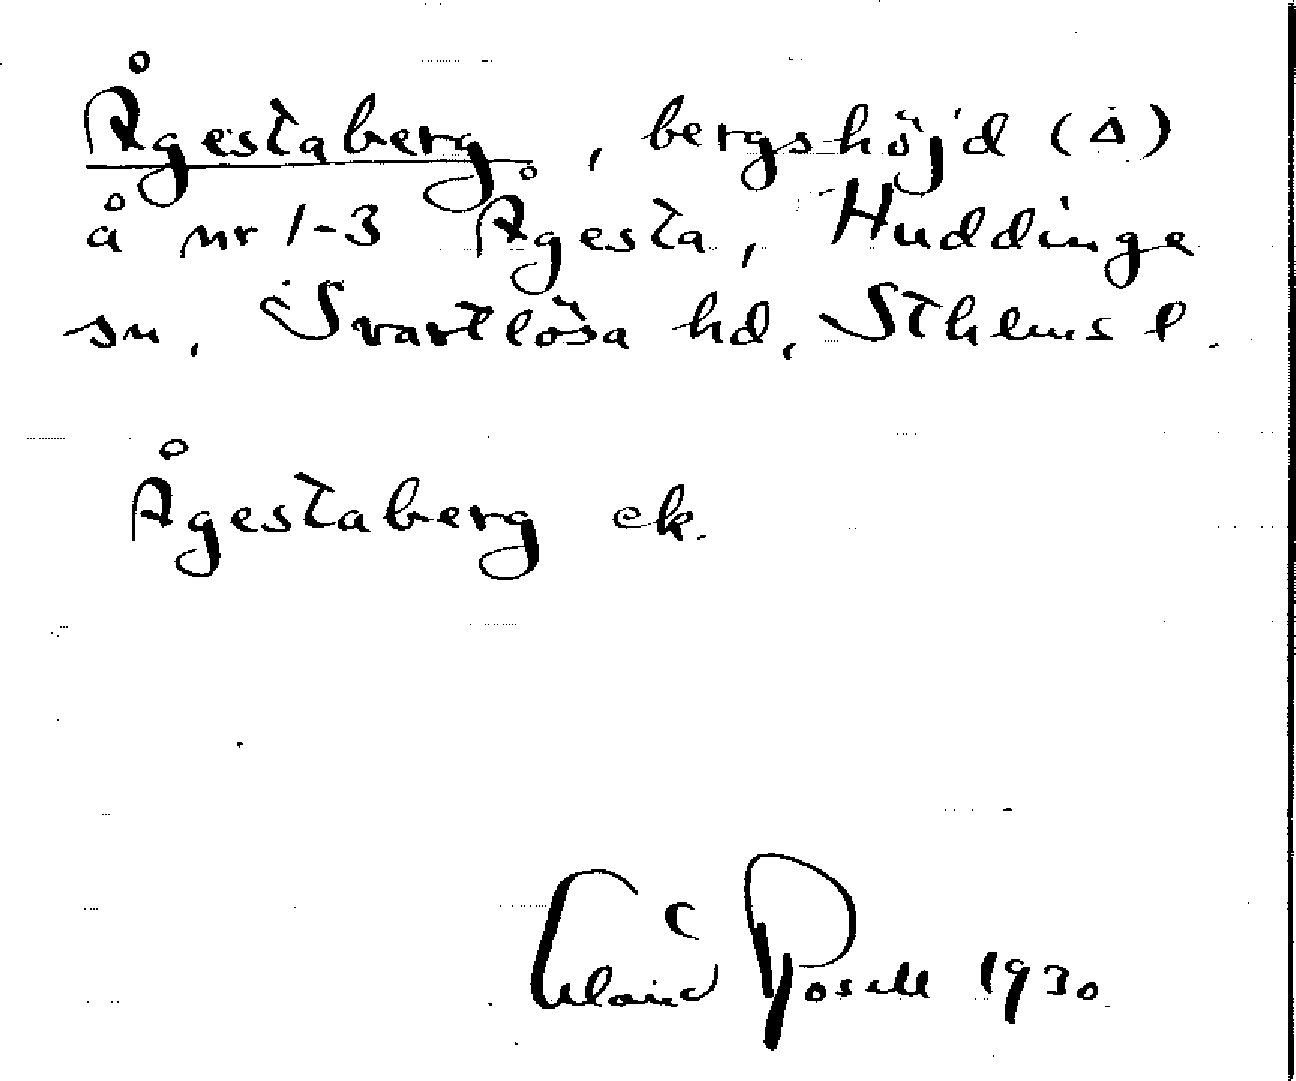 Ågestaberg, bergshöjd (Δ)
å nr 1-3 Ågesta, Huddinge
sn. Svartlösa hd, Sthlms l.
Ågestaberg ek.
Rosell 1930